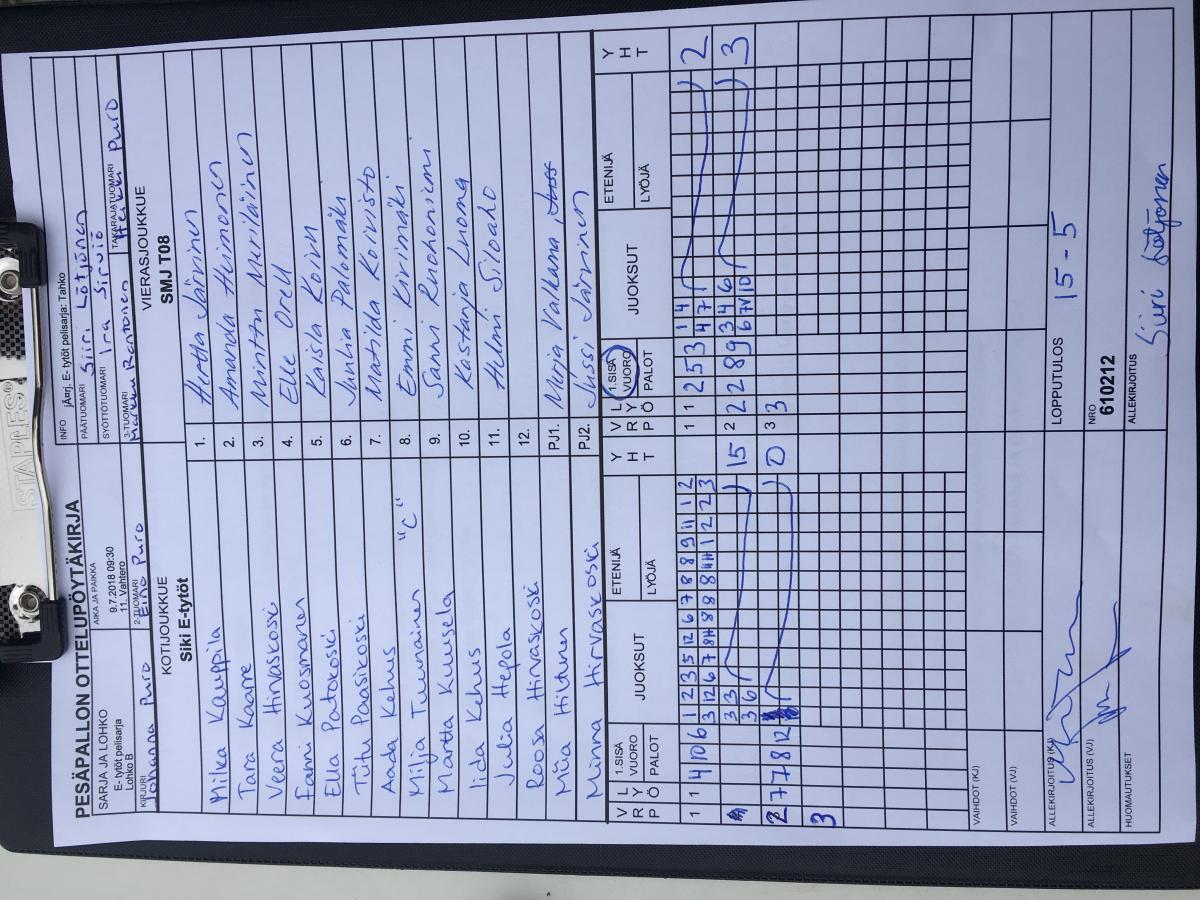 STAPLES®
PESÄPALLON OTTELUPÖYTÄKIRJA
SARJA JA LOHKO
E- tytöt pelisarja
Lohko B
AIKA JA PAIKKA
9.7.2018 09:30
11. Vahtero
INFO jÄ¤rj. E- tytöt pelisarja: Tahko
PÄÄTUOMARI Siiri Lötjönen
SYÖTTÖTUOMARI Ira Sirviö
KIRJURI Johanna Puro
2-TUOMARI Eino Puro
3-TUOMARI Markku Rantonen
TAKARAJATUOMARI Heikki Puro
KOTIJOUKKUE
Siki E-tytöt
VIERASJOUKKUE
SMJ T08
Milka Kauppila 1. Hertta Järvinen
Tara Kaarne 2. Amanda Heimonen
Veera Hirvaskoski 3. Minttu Meriläinen
Fanni Kuosmanen 4. Elle Orell
Ella Patokoski 5. Kaisla Koivu
Tiitu Paasikoski 6. Junlia Palomäki
Aada Kehus 7. Matilda Koivisto
Milja Tuunainen "C" 8. Emmi Kivimäki
Martta Kuusela 9. Sanni Ruohoniemi
Iida Kehus 10. Kastanja Luoma
Julia Hepola 11. Helmi Siloaho
Roosa Hirvaskoski 12.
Miia Hiltunen PJ1. Merja Valkama
Minna Hirvaskoski PJ2. Jussi Järvinen
V R P L Y Ö 1.SISÄ VUORO PALOT JUOKSUT ETENIJÄ LYÖJÄ Y H T
V R P L Y Ö 1.SISÄ VUORO PALOT JUOKSUT ETENIJÄ LYÖJÄ Y H T
1 1 4 10 6 1 2 3 5 12 6 7 8 8 9 11 1 2
3 12 6 7 8H 8 8 8 4H 1 2 2 3
1 1 2 5 3 1 4 2
4 7
3 3 15
3 6
2 2 2 8 9 3 4 6 3
6 7V 10
2 7 7 8 12 0
3 3
3
VAIHDOT (KJ)
VAIHDOT (VJ)
ALLEKIRJOITUS (KJ)
LOPPUTULOS 15 - 5
ALLEKIRJOITUS (VJ)
NRO
610212
HUOMAUTUKSET
ALLEKIRJOITUS
Siiri Lötjönen